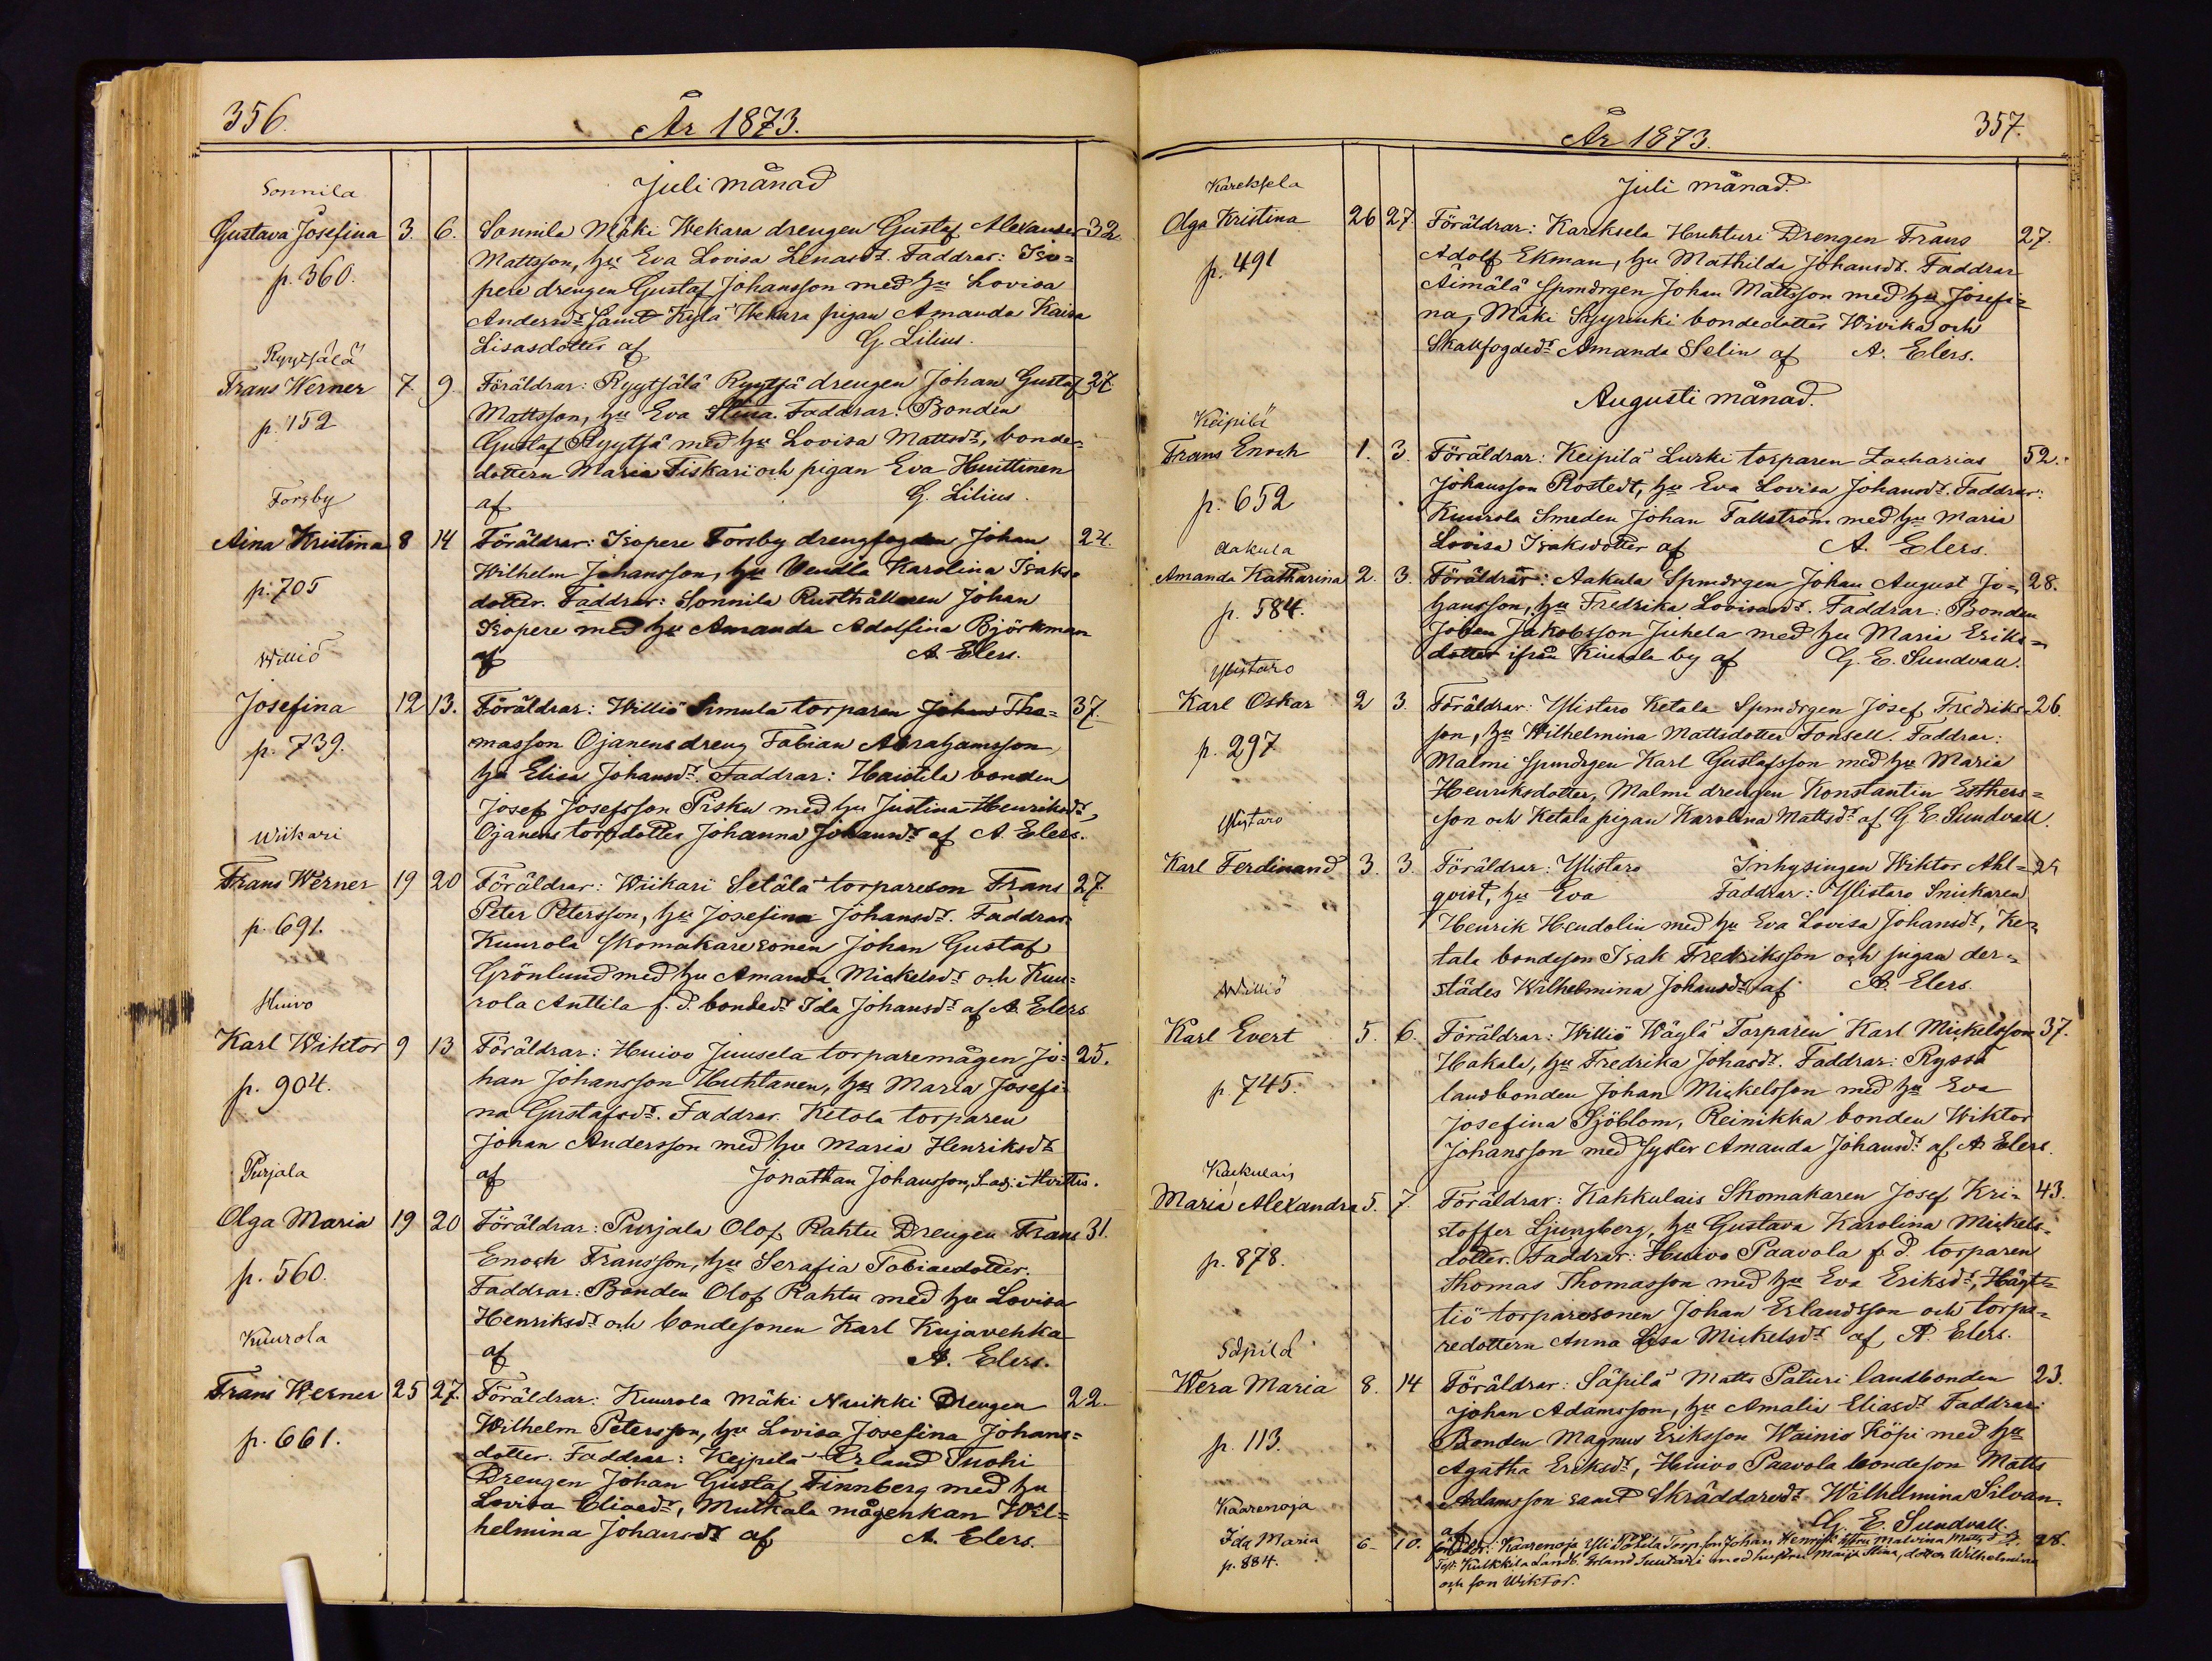 356.
År 1873.
Juli månad
Sonnila
Gustava Josefina 3. 6. Sonnila Mäki Wekara drengen Gustaf Alexander 32.
Mattsson, hu Eva Lovisa Lenasdr. Faddrar: Iso=
p. 360.
pere drengen Gustaf Johansson med hu Lovisa
Andersdr samt Kylä Wekara pigan Amanda Kaisa
Lisasdotter af G. Lilius.
Ryytsälä
Frans Werner 7. 9. Föräldrar: Ryytsälä Ryytsä drengen Johan Gustaf 27.
Mattsson, hu Eva Stina. Faddrar: Bonden
p. 152
Gustaf Ryytsä med hu Lovisa Mattsdr, bonde=
dottern Maria Fiskari och pigan Eva Huittinen
af G. Lilius.
Forsby
Aina Kristina 8 14 Föräldrar: Isopere Forsby drengfogden Johan 24.
Wilhelm Johansson, hu Vendla Karolina Isaks=
p. 705
dotter. Faddrar: Sonnila Rusthållaren Johan
Isopere med hu Amanda Adolfina Björkman
af A. Elers.
Williö
Josefina 12 13. Föräldrar: Williö Simula torparen Johan Tho= 37.
masson Ojanens dreng Fabian Abrahamsson,
p. 739.
hu Elisa Johansdr. Faddrar: Haistila bonden
Josef Josefsson Pisku med hu Justina Henriksdr,
Ojanens torpdotter Johanna Johansdr af A. Elers.
Wiikari
Frans Werner 19 20 Föräldrar: Wiikari Setälä torpareson Frans 27.
Peter Petersson, hu Josefina Johansdr. Faddrar:
p. 691.
Kuurola skomakaresonen Johan Gustaf
Grönlund med hu Amanda Mickelsdr och Kuu=
rola Anttila f. d. bondedr Ida Johansdr af A. Elers
Huivo
Karl Wiktor 9 13 Föräldrar: Huivo Juusela torparemågen Jo= 25.
han Johansson Huhtanen, hu Maria Josefi=
p. 904.
na Gustafsdr. Faddrar. Ketola torparen
Johan Andersson med hu Maria Henriksdr
af Jonathan Johansson, S. adj. i Hvittis.
Purjala
Olga Maria 19 20 Föräldrar: Purjala Olof Rahtu Drengen Frans 31.
Enoch Fransson, hu Serafia Tobiasdotter.
p. 560.
Faddrar: Bonden Olof Rahtu med hu Lovisa
Henriksdr och bondesonen Karl Kujavehka
af A. Elers.
Kuurola
Frans Werner 25 27. Föräldrar: Kuurola Mäki Nuikki Drengen 22.
Wilhelm Petersson, hu Lovisa Josefina Johans=
p. 661.
dotter. Faddrar: Keipilä Erland Tuohi
Drengen Johan Gustaf Finnberg med hu
Lovisa Eliaedr, Muikala mågenkan Wil=
helmina Johansdr af A. Elers.
357.
År 1873.
Juli månad.
Kareksela
Olga Kristina 26 27 Föräldrar: Kareksela Huhturi Drengen Frans 27.
Adolf Ekman, hu Mathilda Johansdr. Faddrar
p. 491
Äimälä Spmdrgen Johan Mattsson med hu Josefi=
na, Mäki Skyrinki bondedotter Wivika och
Skallfogdedr Amanda Selin af A. Elers.
Augusti månad.
Keipilä
Frans Enoch 1. 3. Föräldrar: Keipilä Lurki torparen Zacharias 52.
Johansson Rostedt, hu Eva Lovisa Johansdr. Faddrar:
p. 652
Kuurola Smeden Johan Fallström med hu Maria
Lovisa Isaksdotter af A. Elers.
Aakula
Amanda Katharina 2. 3. Föräldrar: Aakula Spmdrgen Johan August Jo= 28.
hansson, hu Fredrika Lovisasdr. Faddrar: Bonden
p. 584.
Johan Jakobsson Juhela med hu Maria Eriks=
dotter ifrån Kiusala by af G. E. Sundvall.
Ylistaro
Karl Oskar 2 3. Föräldrar: Ylistaro Ketala Spmdrgen Josef Fredriks= 26.
son, hu Wilhelmina Mattsdotter Fonsell. Faddrar:
p. 297
Malmi Spmdrgen Karl Gustafsson med hu Maria
Henriksdotter, Malmi drengen Konstantin Esthers=
son och Ketala pigan Karolina Mattsdr af G. E. Sundvall.
Ylistaro
Karl Ferdinand 3. 3. Föräldrar: Ylistaro Inhysingen Wiktor Ahl=
qvist, hu Eva Faddrar: Ylistaro Snickaren
Henrik Hendolin med hu Eva Lovisa Johansdr, Ke=
tala bondeson Isak Fredriksson och pigan der=
städes Wilhelmina Johansdr af A. Elers.
Williö
Karl Evert 5. 6. Föräldrar: Williö Wäylä Torparen Karl Mickelsson 37.
Hakala, hu Fredrika Johasdr. Faddrar: Ryssä
p. 745.
landbonden Johan Mickelsson med hu Eva
Josefina Sjöblom, Reinikka bonden Wiktor
Johansson med Syster Amanda Johansdr af A. Elers.
Kaukulais
Maria Alexandra 5. 7. Föräldrar: Kakkulais Skomakaren Josef Kri= 43.
stoffer Ljungberg, hu Gustava Karolina Mickels=
p. 878.
dotter. Faddrar: Huivo Paavola f. d. torparen
Thomas Thomasson med hu Eva Eriksdr, Hägt=
tiö torparesonen Johan Erlandsson och torpa=
redottern Anna Lisa Mickelsdr af A. Elers.
Säpilä
Wera Maria 8. 14 Föräldrar: Säpilä Matts Paturi landbonden 23.
Johan Adamsson, hu Amalia Eliasdr Faddrar:
p. 113.
Bonden Magnus Eriksson Wainio Köpi med hu
Agatha Eriksdr, Huivo Paavola bondeson Matts
Adamsson samt Skräddaredr Wilhelmina Silvan.
af G. E. Sundvall.
Kaarenoja
Ida Maria 6. 10. föräldr: Kaarenoja Yli Tohila Torp. son Johan Henriks hstru Malvina Mattsd. 28.
p. 884.
Test. Kulkkila Landb. Erland Suutari med hustru Maija Stina, dotter Wilhelmina
och son Wiktor.